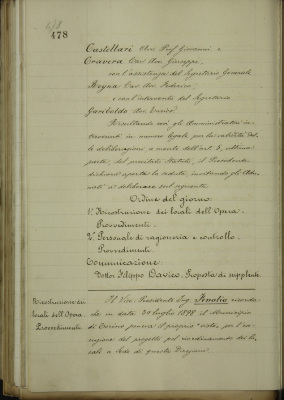 478
478
Castellari Avv. Prof. Giovanni e
Cravera Cav. Avv. Giuseppe,
coll'assistenza del Segretario Generale
Mogna Cav. Avv. Federico,
e coll'intervento del Segretario
Gariboldo Avv. Enrico.
Risultando così gli Amministratori in-
tervenuti in numero legale per la validità del-
le deliberazioni a mente dell'art. 5, ultima
parte, del presente Statuto, il Presidente
dichiara aperta la seduta, invitando gli Adu-
nati a deliberare sul seguente
Ordine del giorno:
1º Ricostruzione dei locali dell'Opera.
Provvedimenti.
2º Personale di ragioneria e controllo.
Provvedimenti.
Comunicazione.
Dottor Filippo Davico. Proposta di
Ricostruzione dei
locali dell'Opera.
Provvedimenti.
Il Vice Presidente Ing. Fenolio ricorda
che in data 30 luglio 1898 il Municipio
di Torino poneva il proprio "visto" per l'ese-
cuzione del progetto pel riordinamento dei lo-
cali a sede di questa Direzione